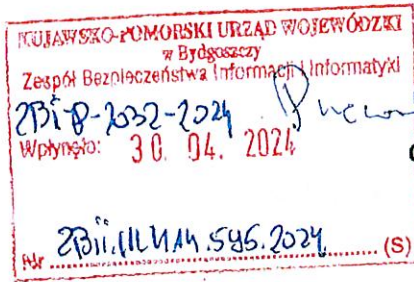 KUJAWSKO-POMORSKI URZĄD WOJEWÓDZKI
w Bydgoszczy
Zespół Bezpieczeństwa Informacji i Informatyki
ZBI-P-2032-2024
Wpłynęło: 30. 04. 2024
Nr ZBII. .595.2024. (S)